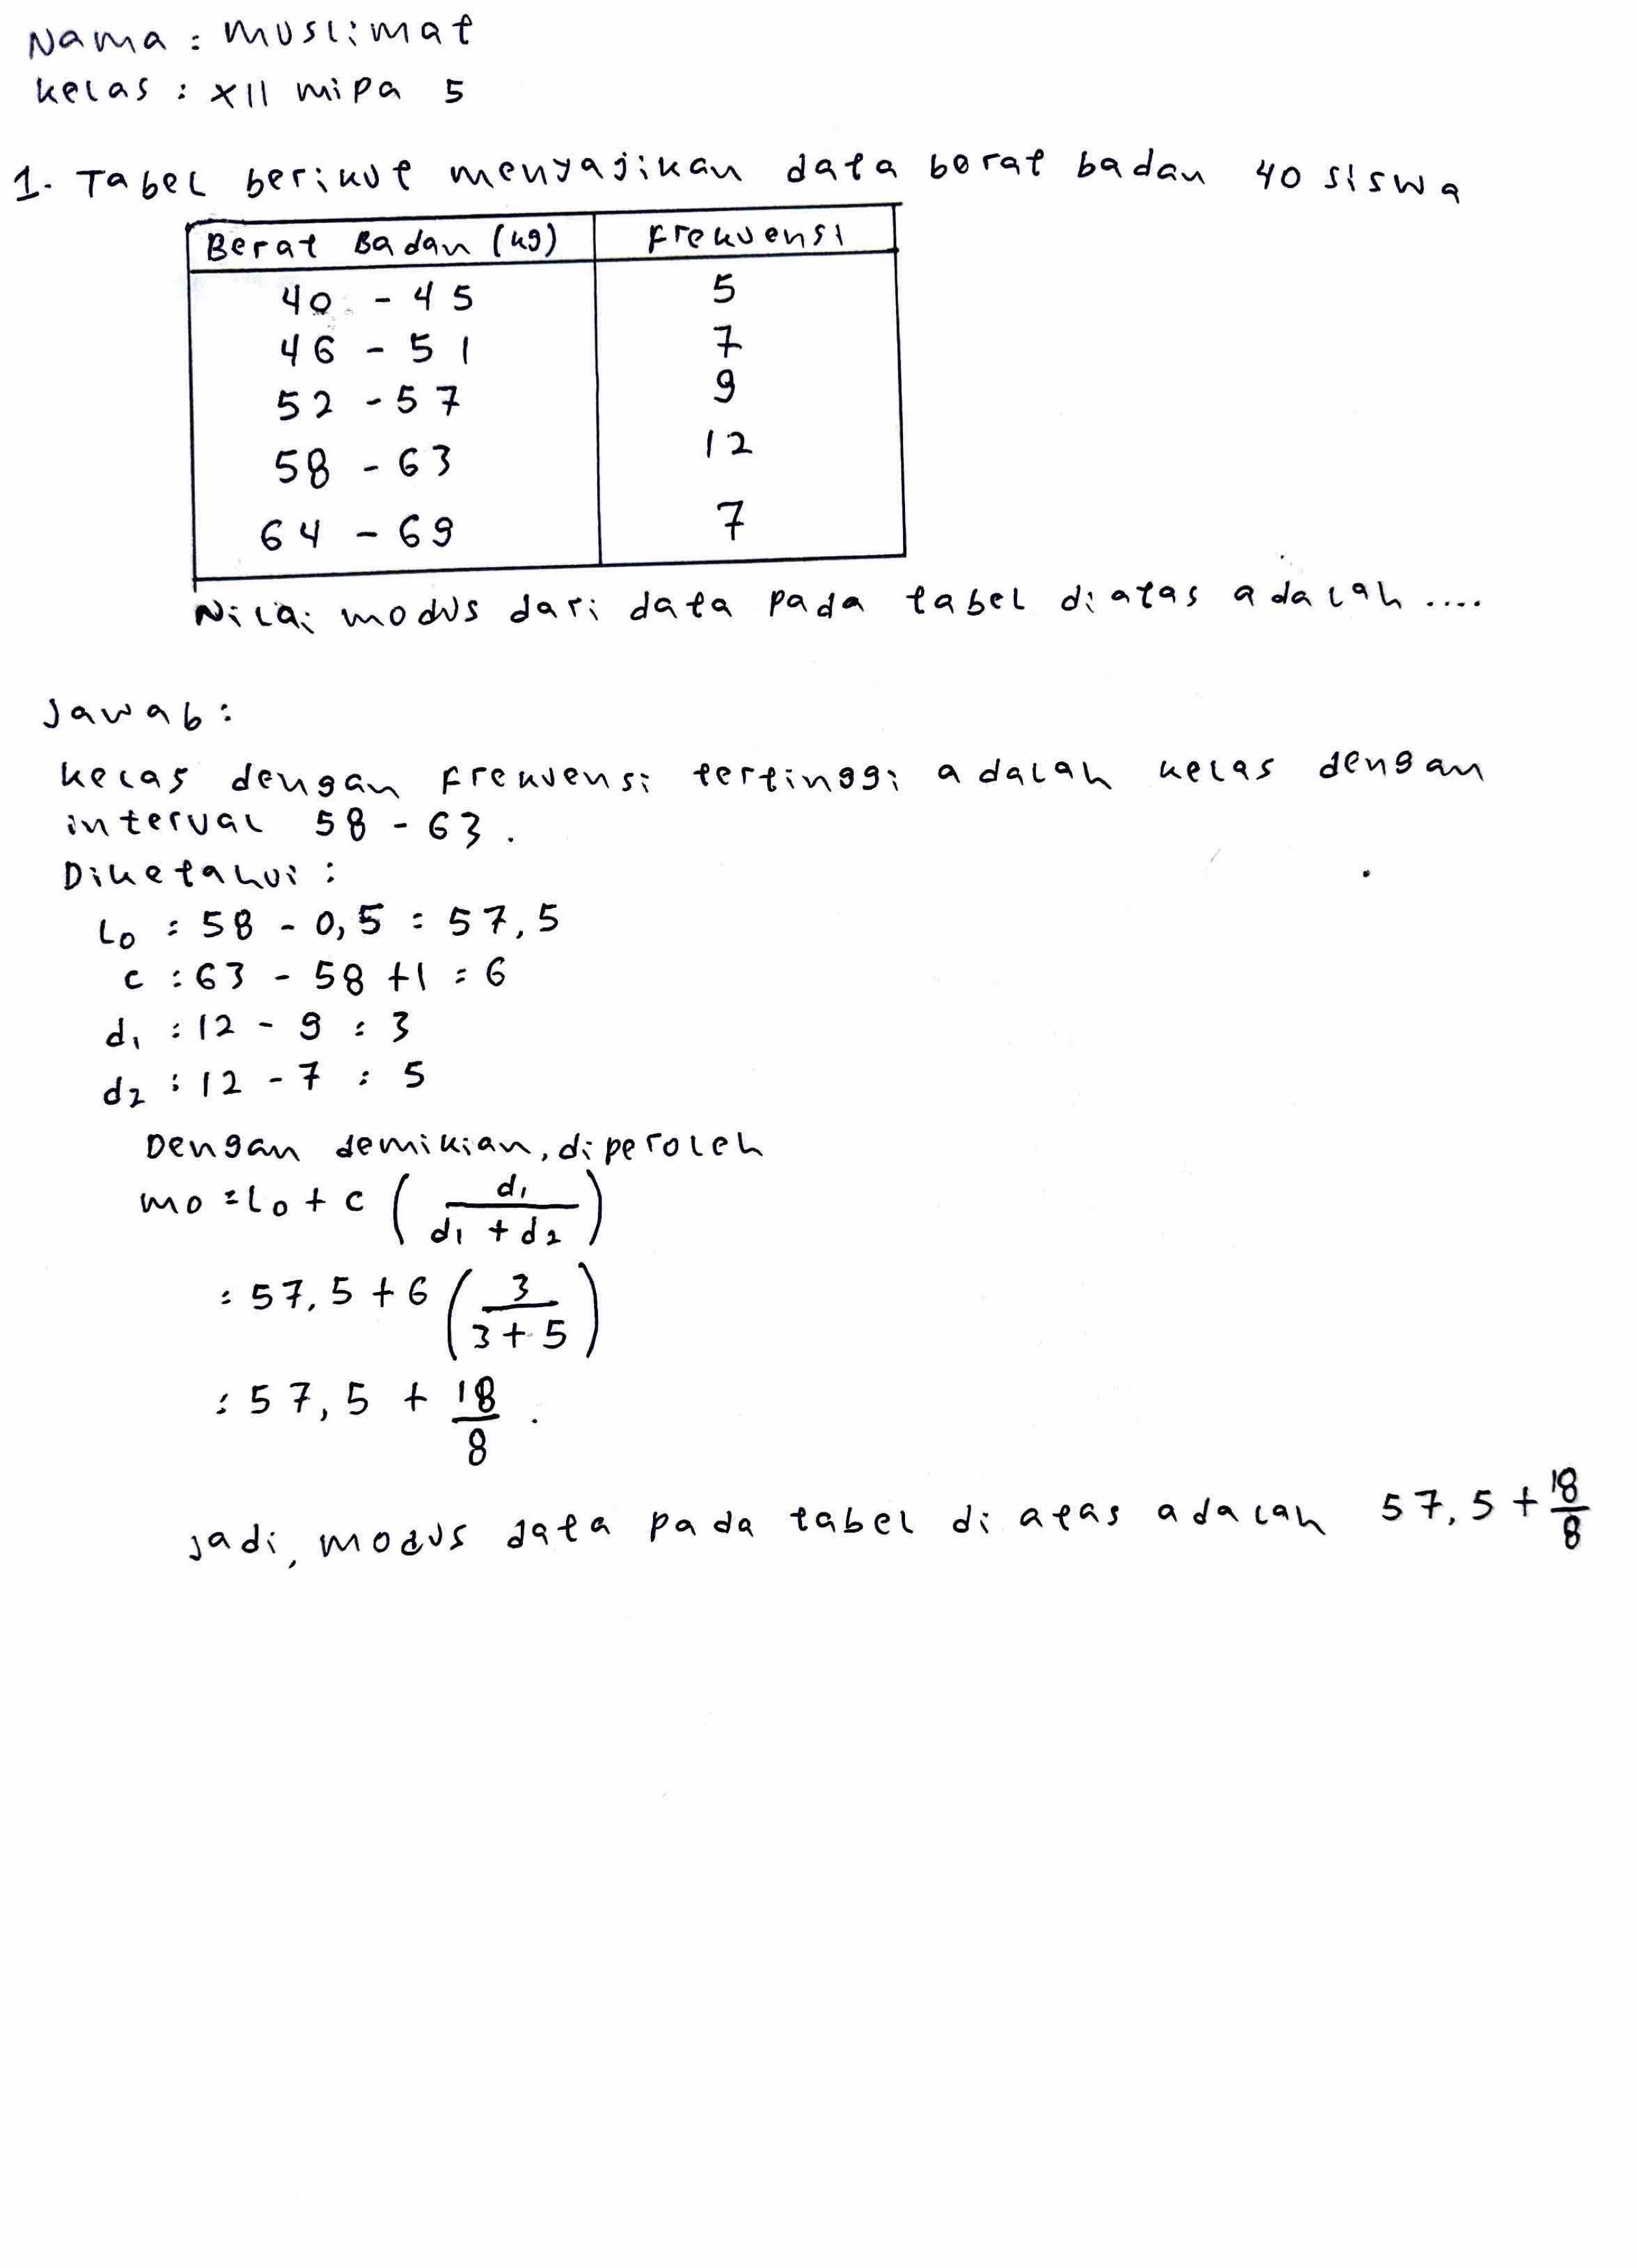 Nama : Muslimat
Kelas : XII mipa 5
1. Tabel berikut menyajikan data berat badan 40 siswa
Berat Badan (kg) Frekuensi
40 - 45 5
46 - 51 7
52 - 57 9
58 - 63 12
64 - 69 7
Nilai modus dari data pada tabel diatas adalah ....
Jawab :
Kelas dengan Frekuensi tertinggi adalah kelas dengan
interval 58 - 63 .
Diketahui :
L₀ : 58 - 0,5 = 57,5
c : 63 - 58 + 1 = 6
d₁ : 12 - 9 = 3
d₂ : 12 - 7 = 5
Dengan demikian, diperoleh
Mo = L₀ + c ( d₁ / d₁ + d₂ )
= 57,5 + 6 ( 3 / 3 + 5 )
= 57,5 + 18/8 .
Jadi, modus data pada tabel di atas adalah 57,5 + 18/8